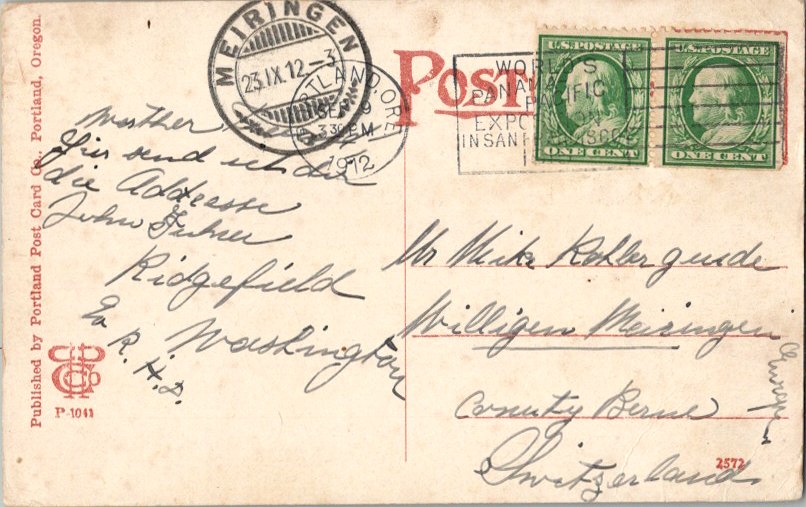 Published by Portland Post Card Co., Portland, Oregon.
P-1041
MEIRINGEN
23.IX.12.-3
PORTLAND, ORE.
SEP 9
3 30 PM
1912
WORLD'S
PANAMA
PACIFIC
EXPOSITION
IN SAN
POST
U.S. POSTAGE
ONE CENT
U.S. POSTAGE
ONE CENT
send ich dir
die Addresse
John
Ridgefield
Washington
R. H. D.
Mr Mike
Willigen Meiringen
County Berne
Switzerland
Europe
2572